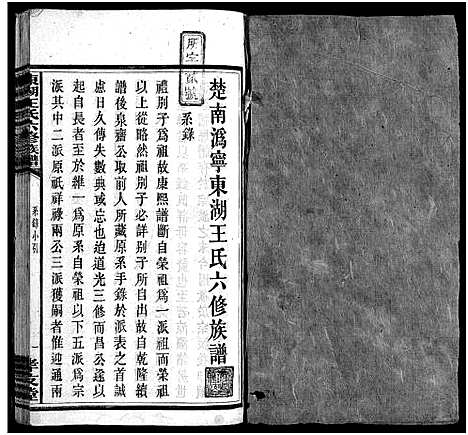 楚南溈寧東湖王氏六修族譜
系錄
禮別子爲祖故康熙譜斷自榮祖爲一派而榮祖
以上略然祖別子必詳別子所自出故自乾隆續
譜後泉齋公取前人所藏原系手錄於派表之首誠
慮日久傳失數典或忘也迫道光三修而昌公遂以
起自長者至於維一爲原系自榮祖以下五派爲宗
派其中二派原祇祥祿兩公三派獲嗣者惟迎通兩
東湖王氏六修族譜
系錄小引
一
孝友堂